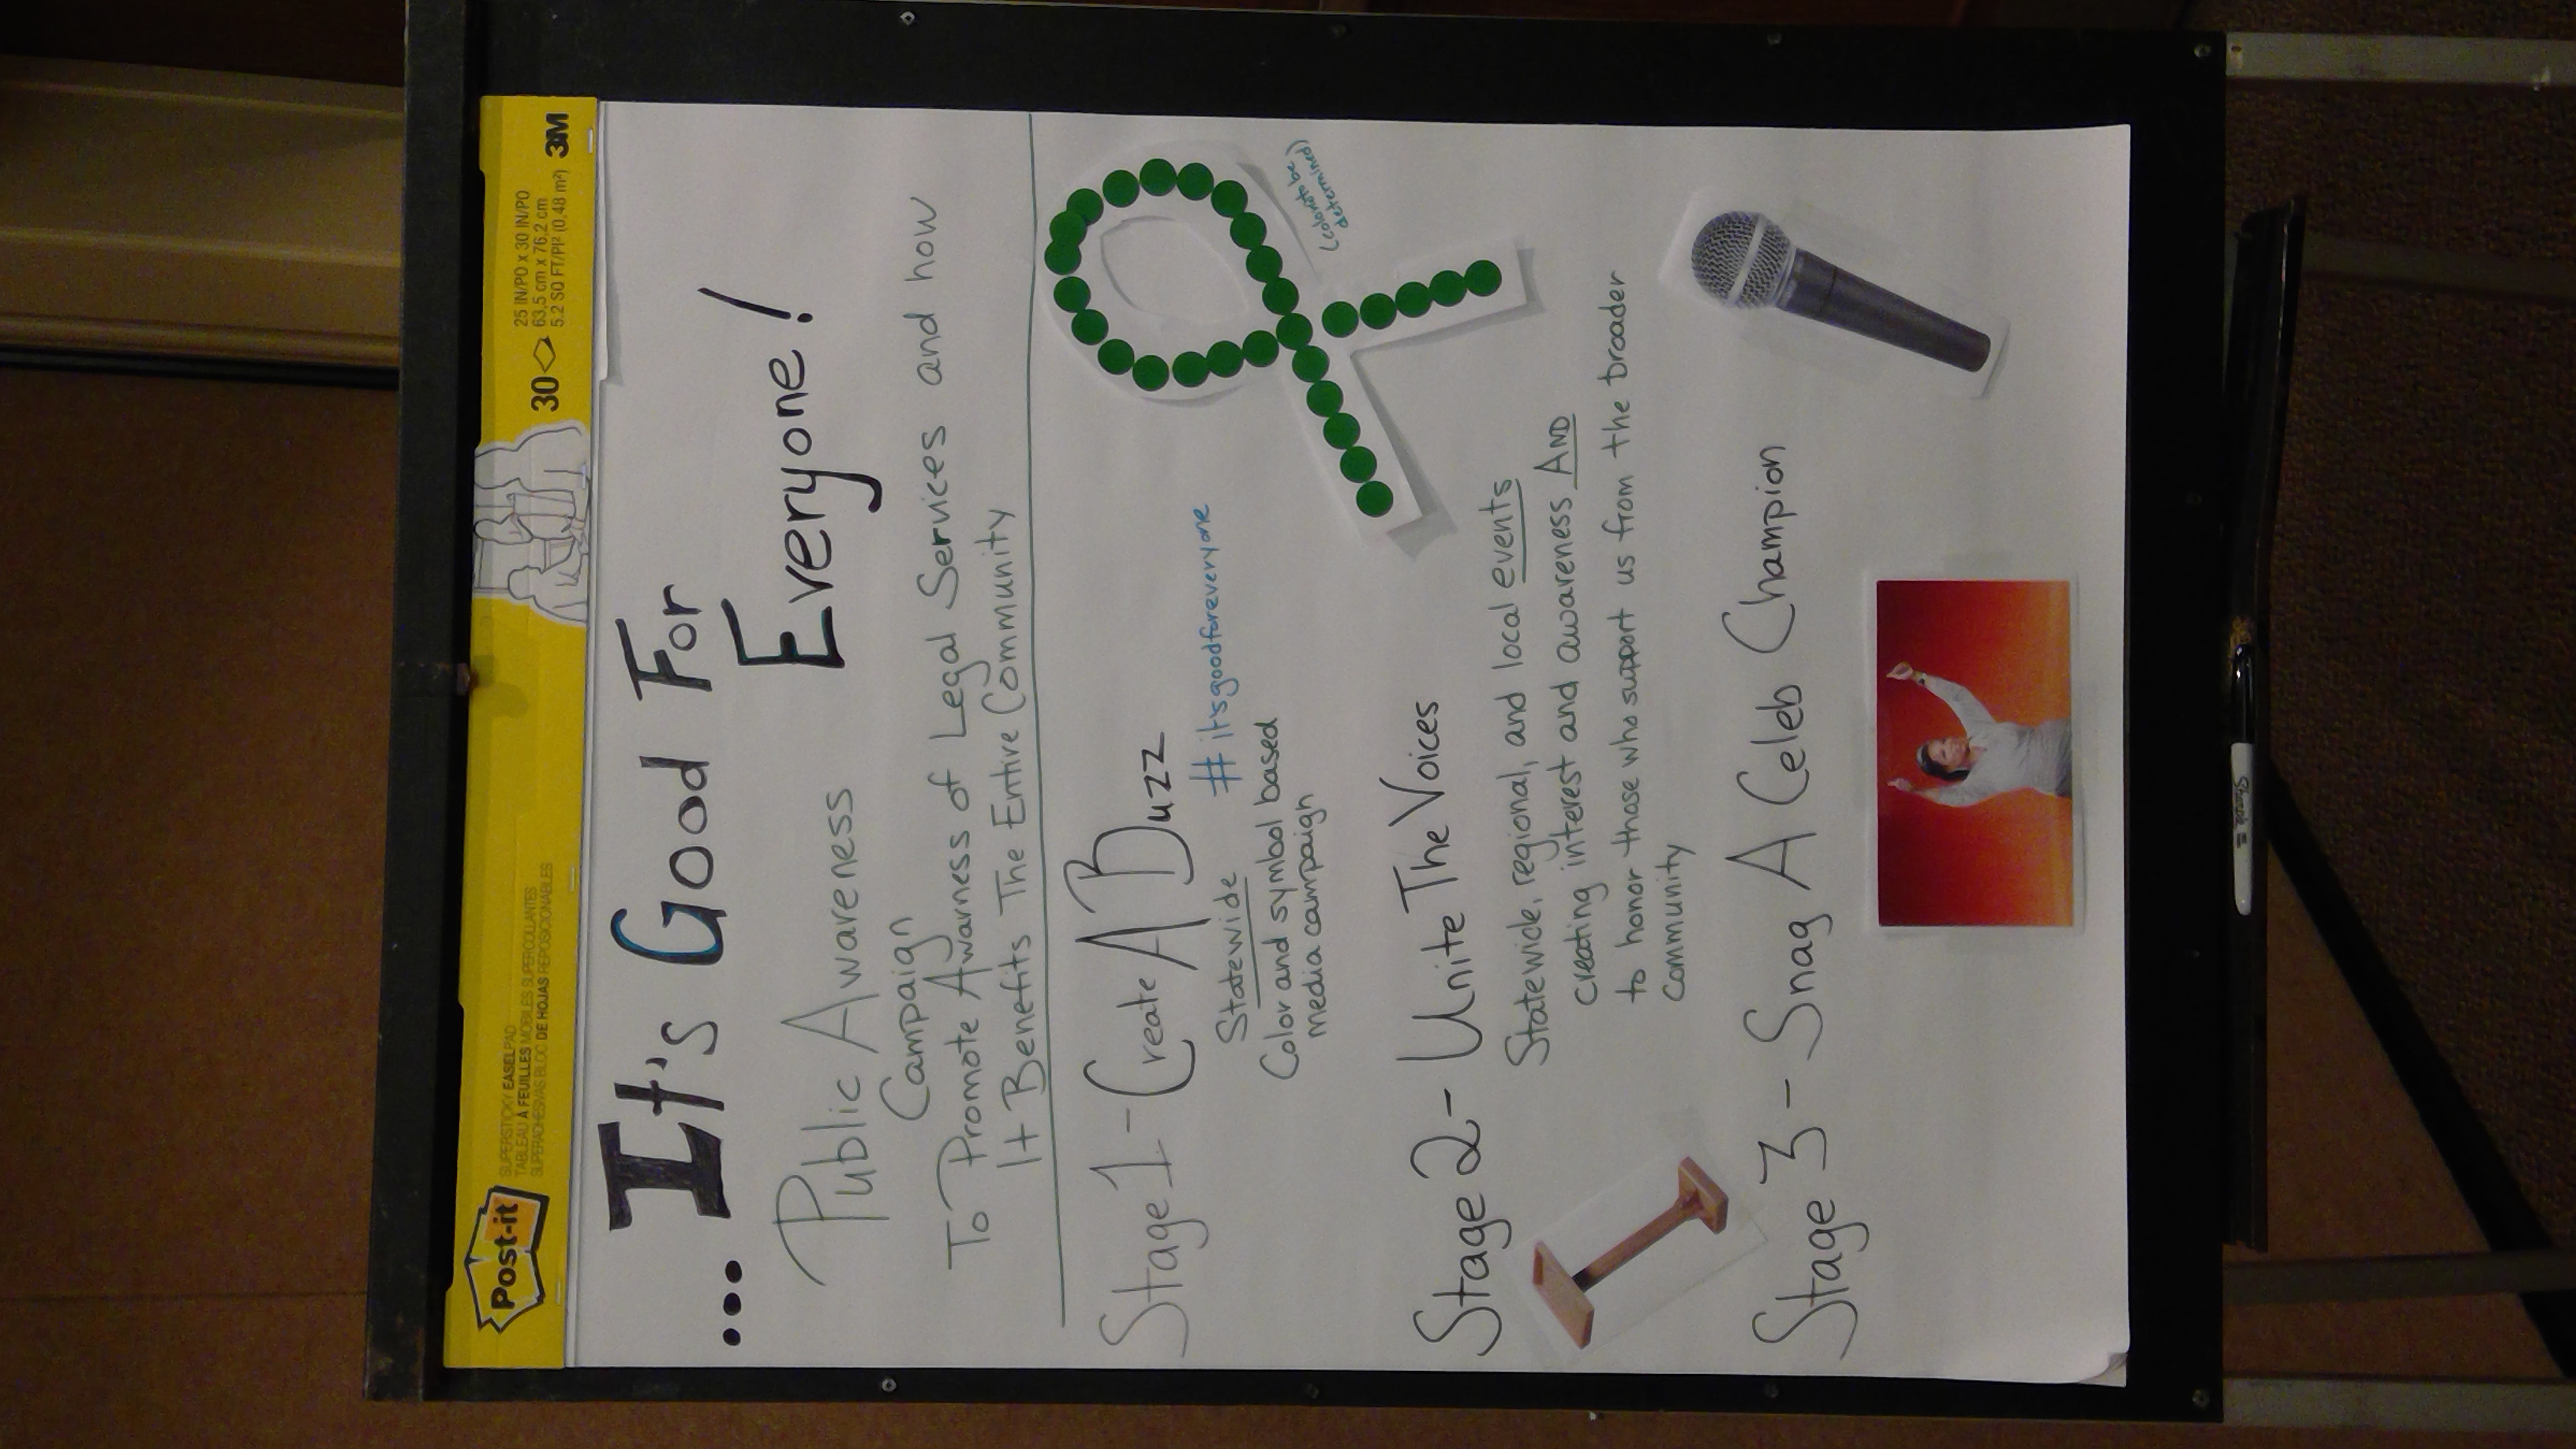 Post-it
SUPERSTICKY EASELPAD
TABLEAU À FEUILLES MOBILES SUPERCOLLANTES
SUPERADHESIVAS BLOC DE HOJAS REPOSICIONABLES
30
25 IN/PO x 30 IN/PO
63,5 cm x 76,2 cm
5.2 SQ FT/PI² (0,48 m²)
3M
... It's Good For
Everyone!
Public Awareness
Campaign
To Promote Awarness of Legal Services and how
It Benefits The Entire Community
Stage 1 - Create A Buzz
Statewide
#itsgoodforeveryone
Color and symbol based
media campaign
(color to be
determined)
Stage 2 - Unite The Voices
Statewide, regional, and local events
creating interest and awareness AND
to honor those who support us from the broader
community
Stage 3 - Snag A Celeb Champion
Sharpie